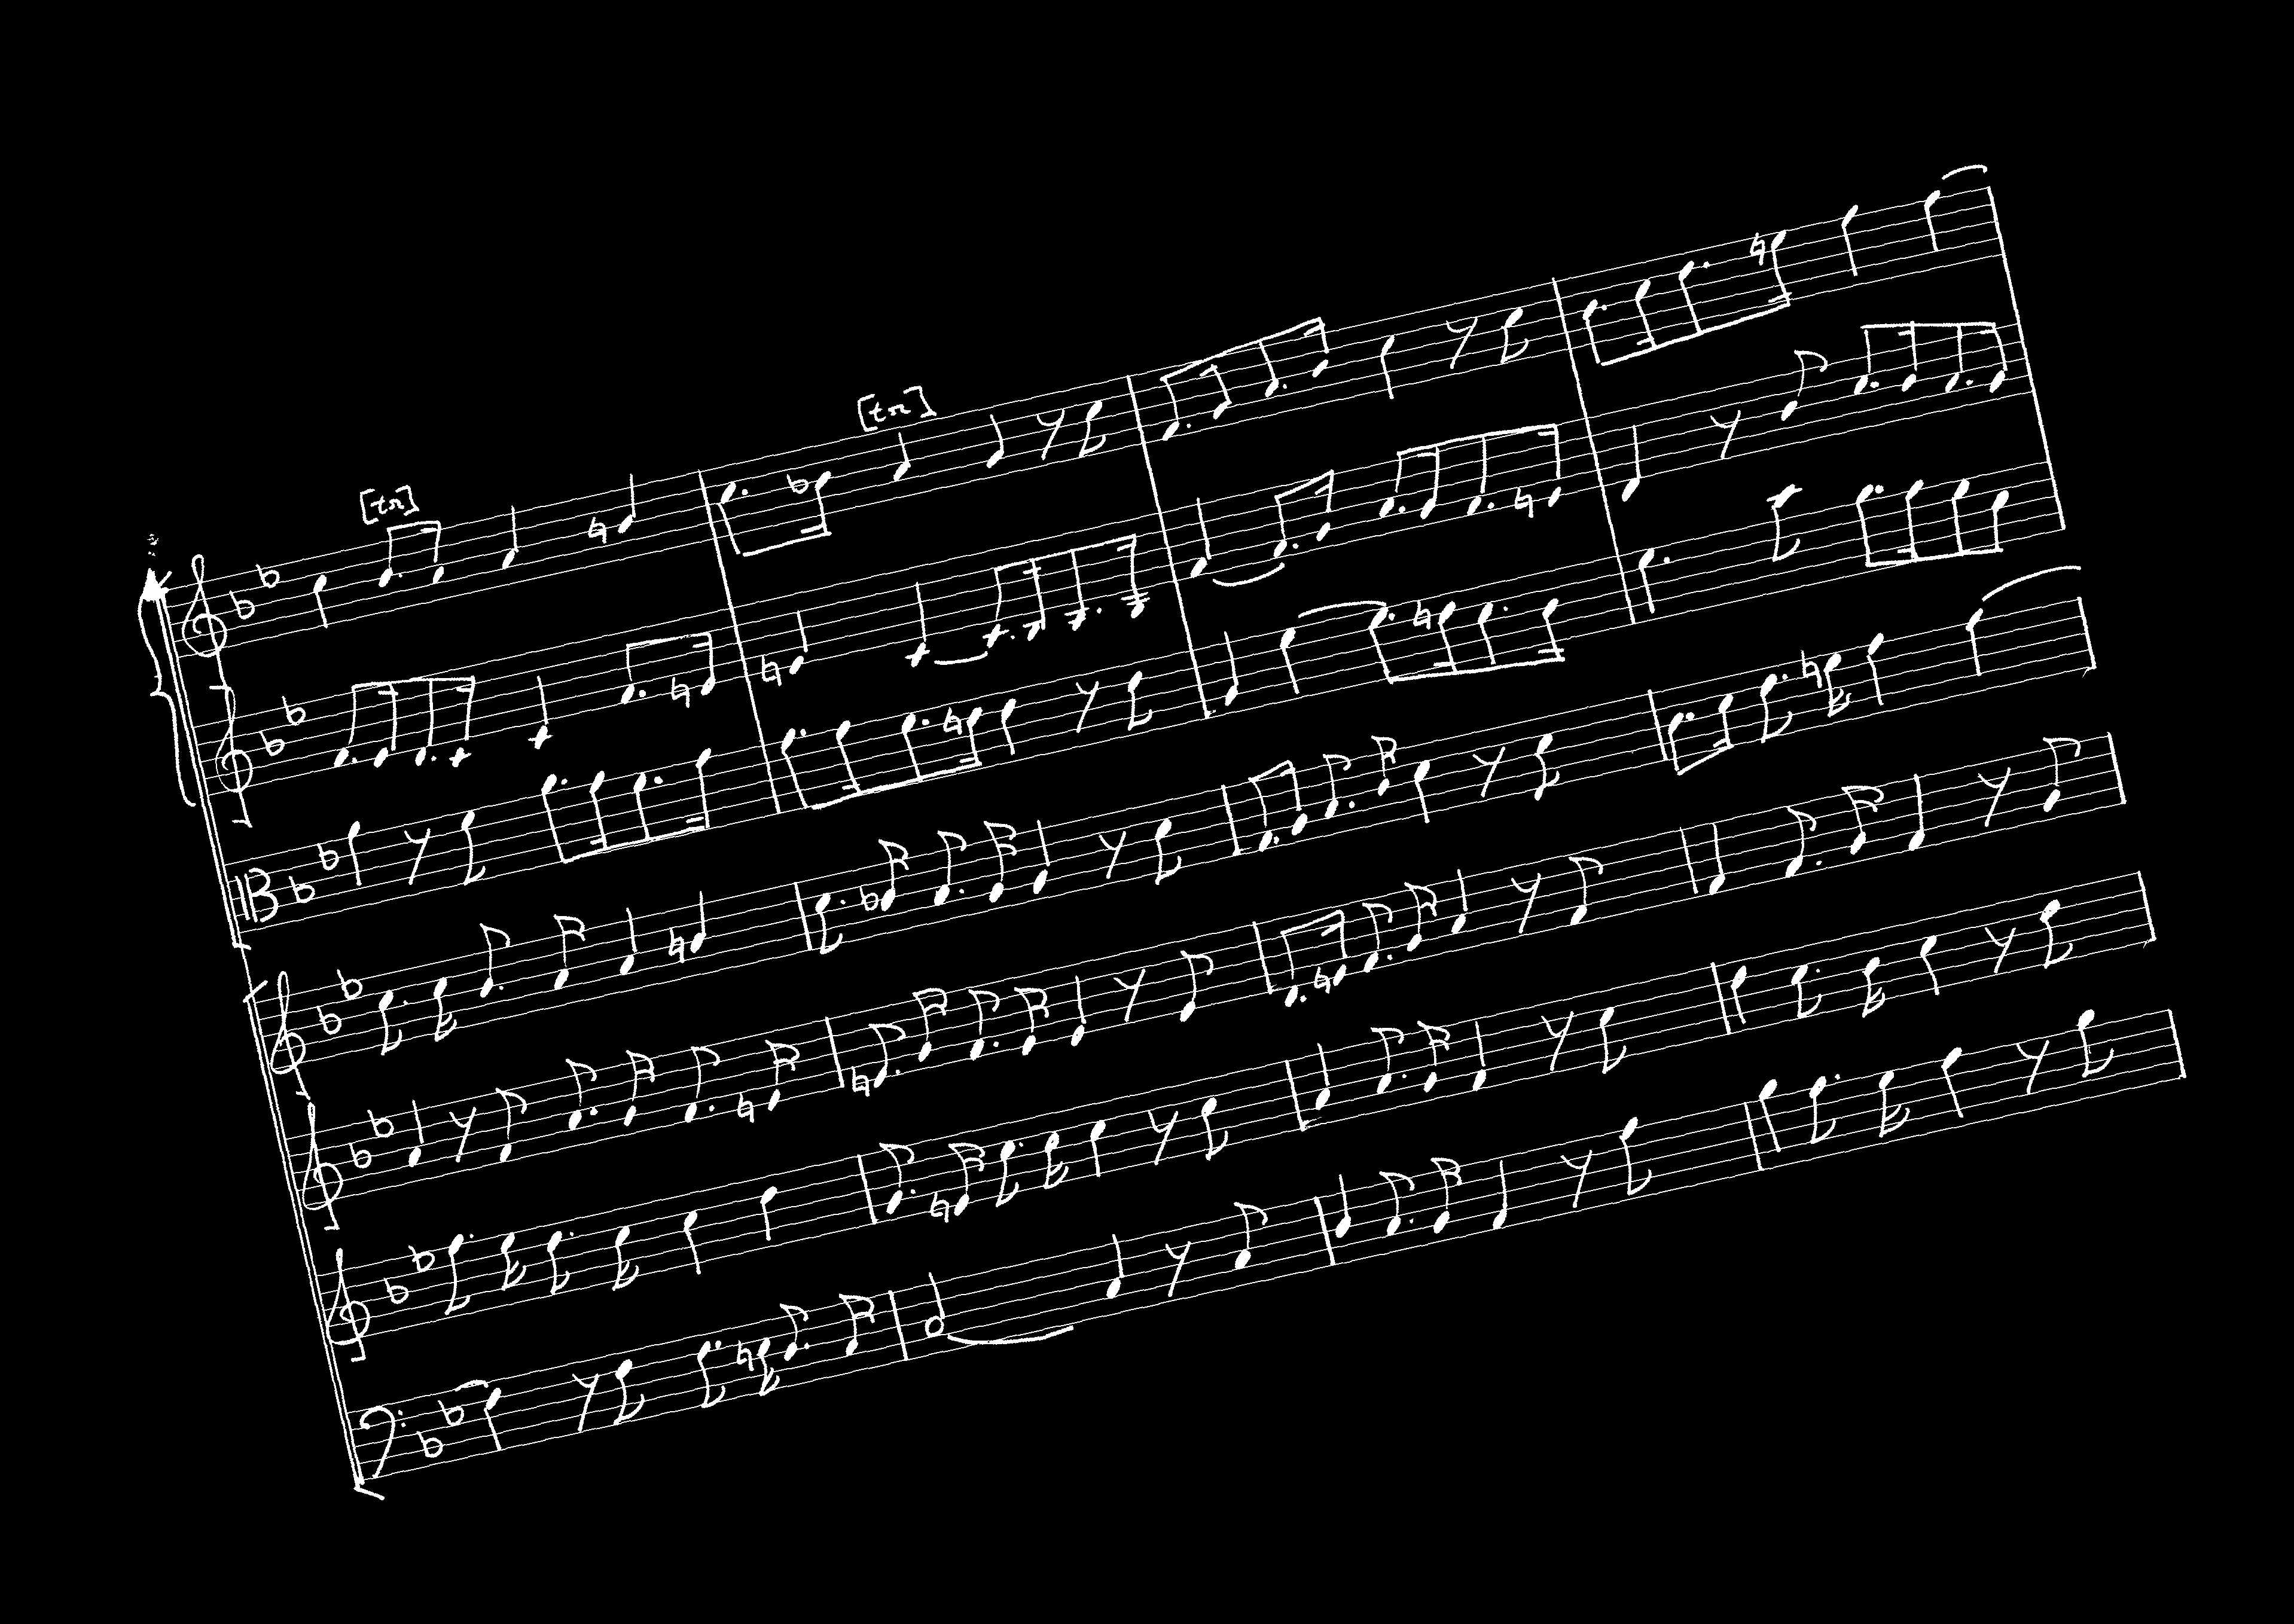 [tr]
[tr]